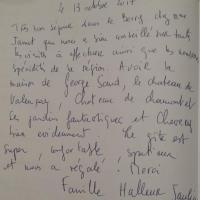 Le 13 octobre 2017
Très bon séjour dans le Berry chez
nous a bien conseillé sur toutes
les visites à effectuer ainsi que les
spécialités de la région. A voir la
maison de George Sand, le chateau de
Valençay, chateau de chaumont
ses jardins fantastiques et Cheverny
bien evidemment. Le gîte est
super, confortable, spatieux
et nous a régalé. Merci
Famille Halleux